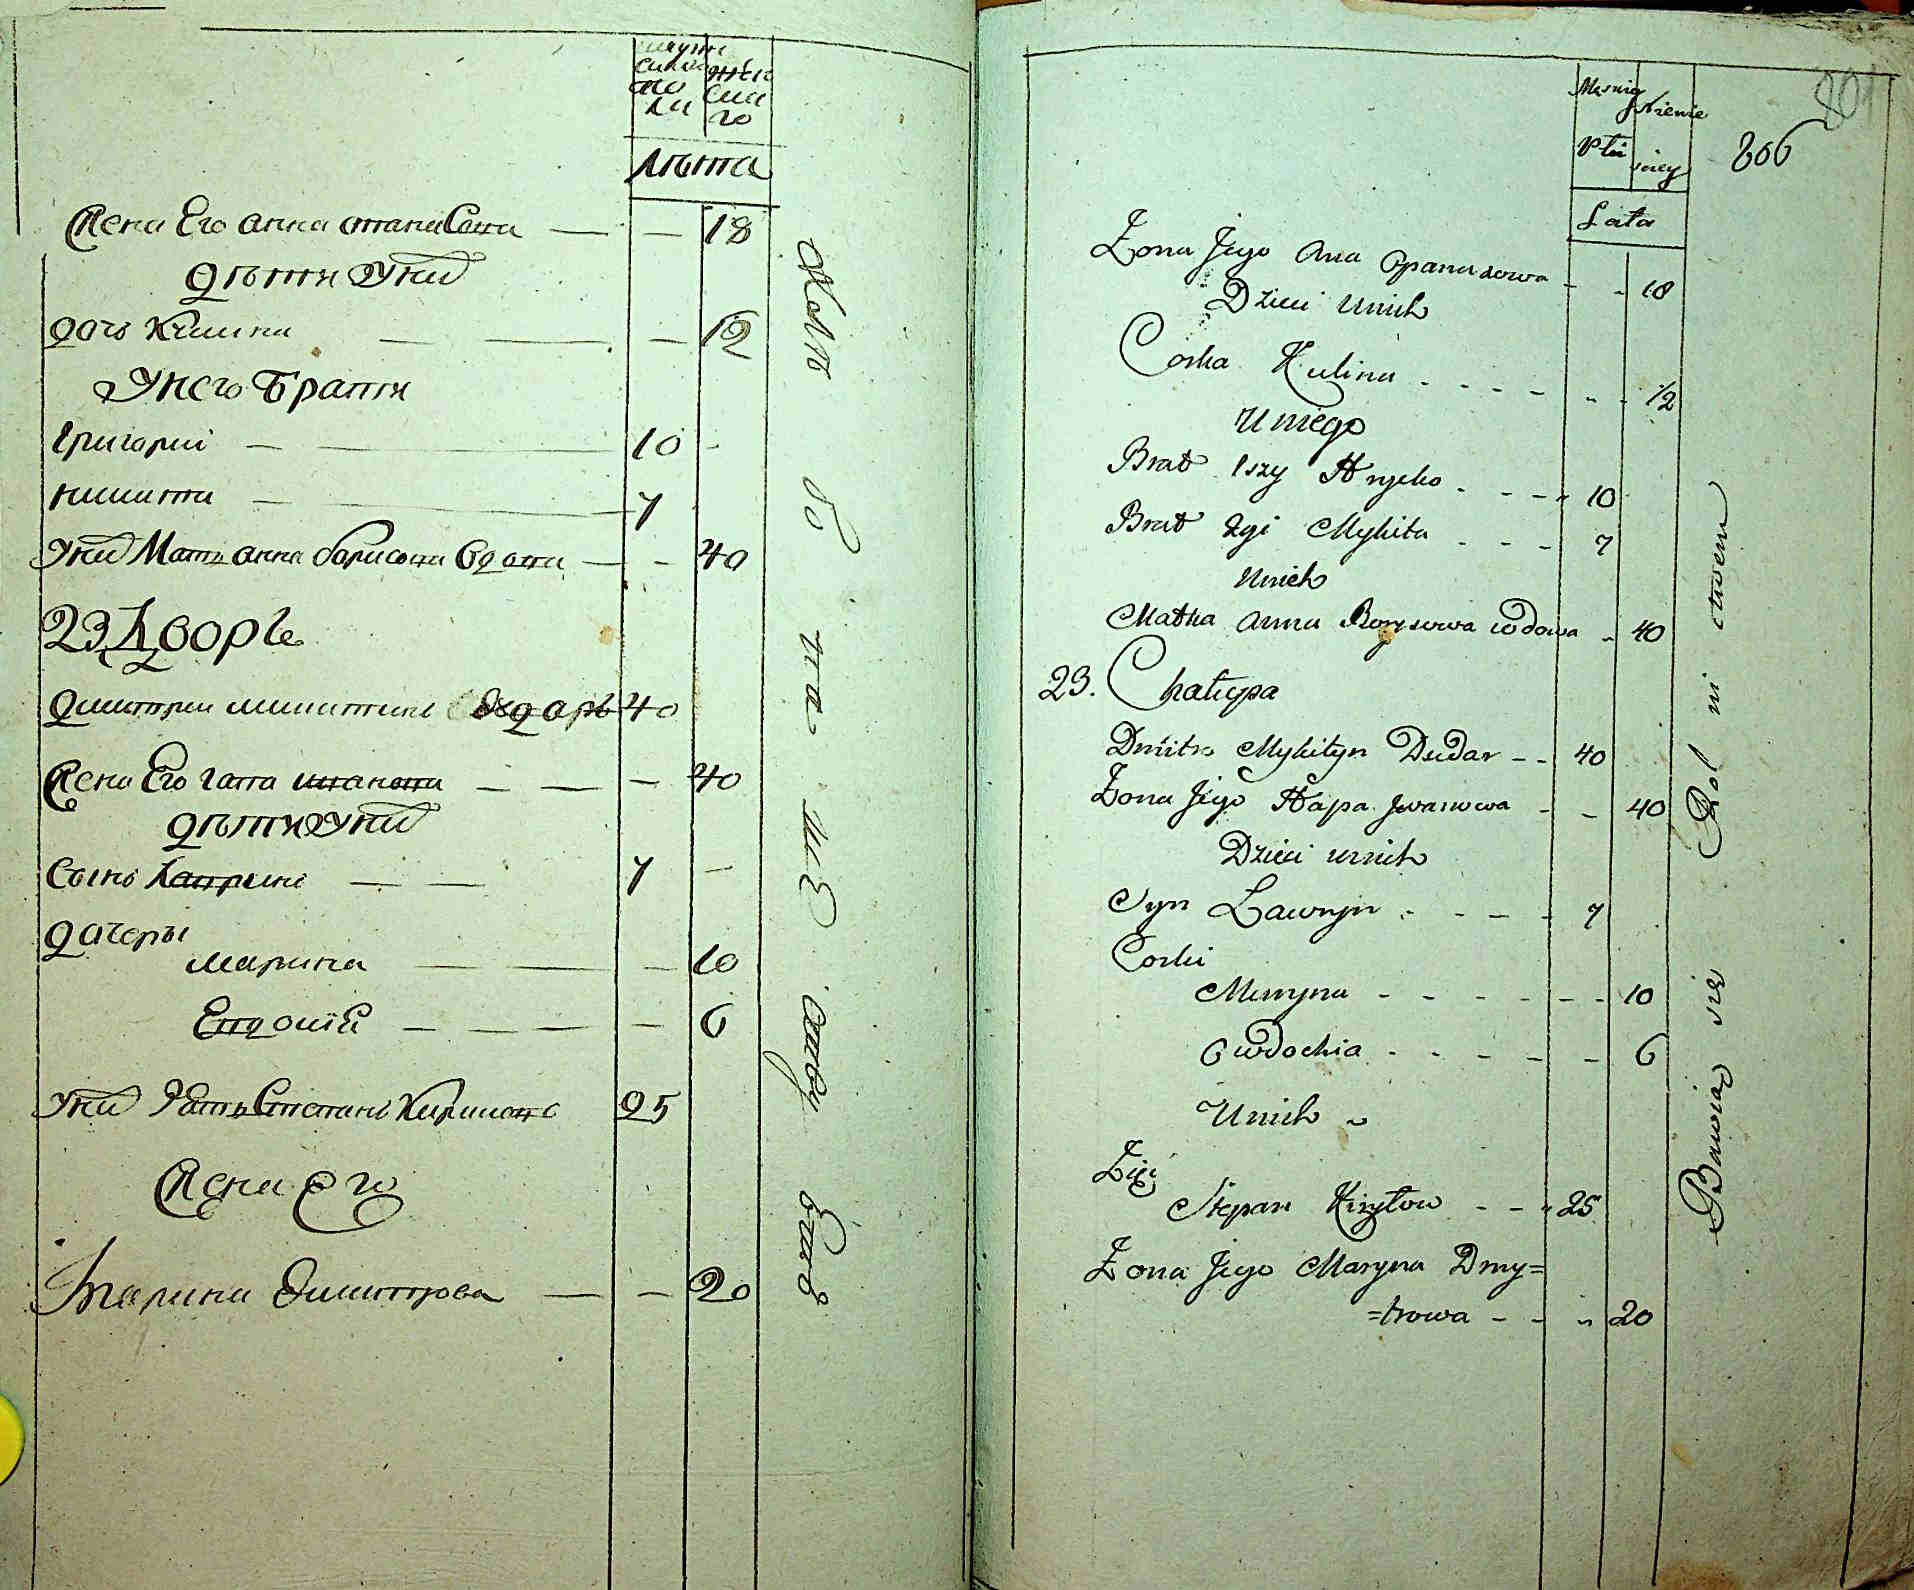 мужска
поли
женска
го
лѣта
Жена Его анна опанасова — — 18
дѣти Унихъ
дочь Кулина — — 1/2
Унего братя
григорий — 10 -
никита — 7
Унихъ Мать анна борисова вдова — - 40
23 Дворъ
димитрий микитинъ дударъ 40
Жена Его гапа иванова — — — 40
дѣти Унихъ
Сынъ лавринъ — — 7 —
дочеры
марина — — — 10
Евдокия — — — — 6
Унихъ зять Степанъ Кириловъ 25
Жена его
Марина димитрова — — 20
Męzkiey
Płci
Żenskiey
Lata
806
Żona Jego Ana Opanasowa - - 18
Dzieci Unich
Corka Kulina - - - - - - 1/2
Uniego
Brat 1szy Hryćko - - - - 10
Brat 2gi Mykita - - - 7
Unich
Matka Anna Borysowa wdowa - 40
23. Chałupa
Dmitro Mykityn Dudar - - 40
Żona Jego Hapa Jwanowa - - 40
Dzieci unich
Syn Ławryn - - - - 7
Corki
Maryna - - - - - - - 10
Ewdochia - - - - - - 6
Unich
Zięć
Stepan Kiryłow - - - 25
Żona Jego Maryna Dmy=
=trowa - - - 20
Bawiąc się Rolnictwem